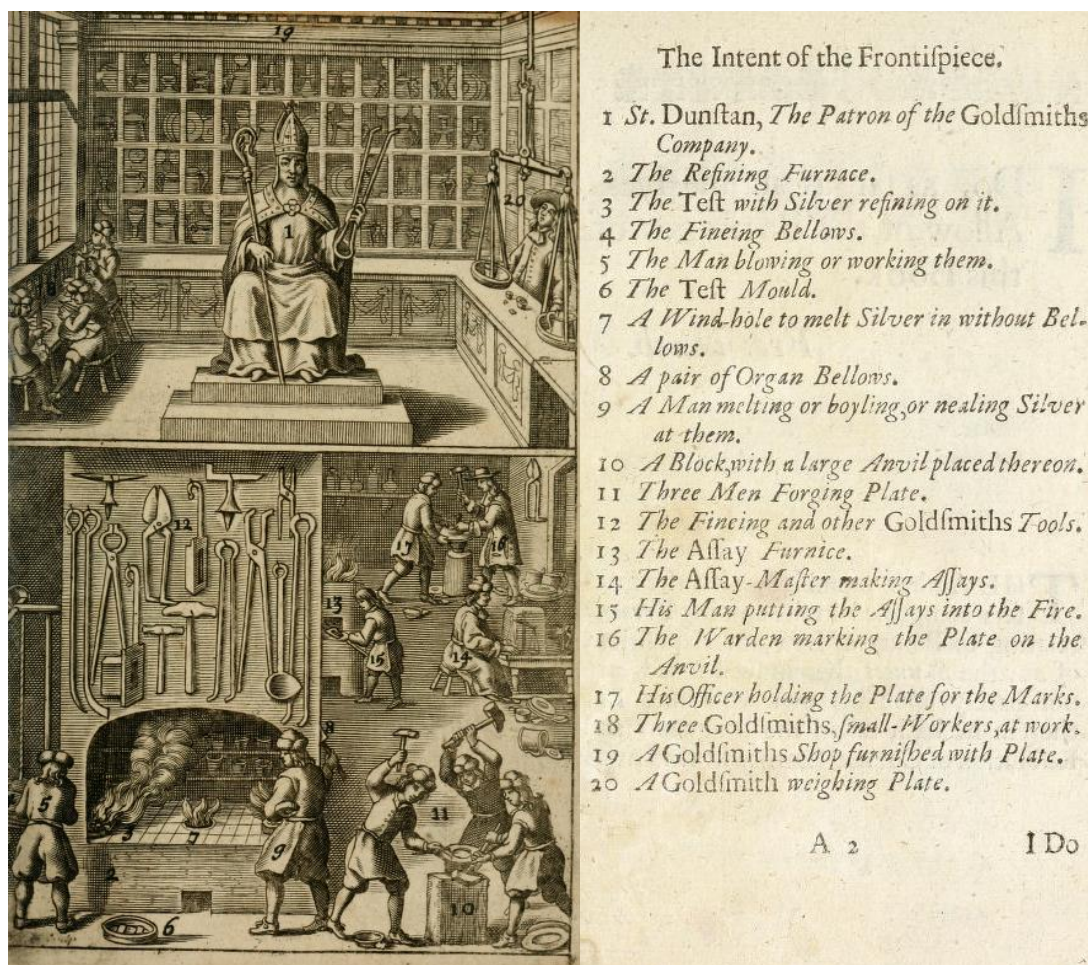 19
1
20
18
12
17
16
13
15
14
8
5
11
3
7
9
2
10
6
The Intent of the Frontiſpiece.
1 St. Dunſtan, The Patron of the Goldſmiths
Company.
2 The Refining Furnace.
3 The Teſt with Silver refining on it.
4 The Fineing Bellows.
5 The Man blowing or working them.
6 The Teſt Mould.
7 A Wind-hole to melt Silver in without Bel-
lows.
8 A pair of Organ Bellows.
9 A Man melting or boyling, or nealing Silver
at them.
10 A Block, with a large Anvil placed thereon.
11 Three Men Forging Plate.
12 The Fineing and other Goldſmiths Tools.
13 The Aſſay Furnice.
14 The Aſſay-Maſter making Aſſays.
15 His Man putting the Aſſays into the Fire.
16 The Warden marking the Plate on the
Anvil.
17 His Officer holding the Plate for the Marks.
18 Three Goldſmiths, ſmall-Workers, at work.
19 A Goldſmiths Shop furniſhed with Plate.
20 A Goldſmith weighing Plate.
A 2 I Do